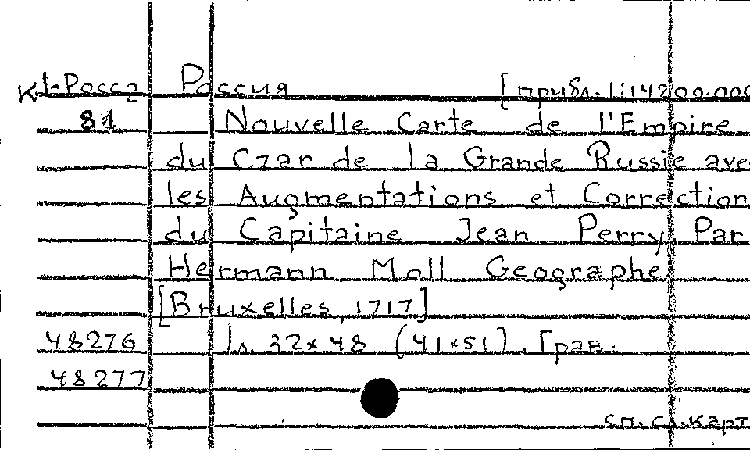 К1-Росс2 Россия [прибл. 1:14200.000
81 Nouvelle Carte de l'Empire
du Czar de la Grande Russie ave
les Augmentations et Correction
du Capitaine Jean Perry. Par
Hermann Moll Geographe
[Bruxelles, 1717]
48276 32×48 (41×51). Грав.
48277
сп. сл. карт